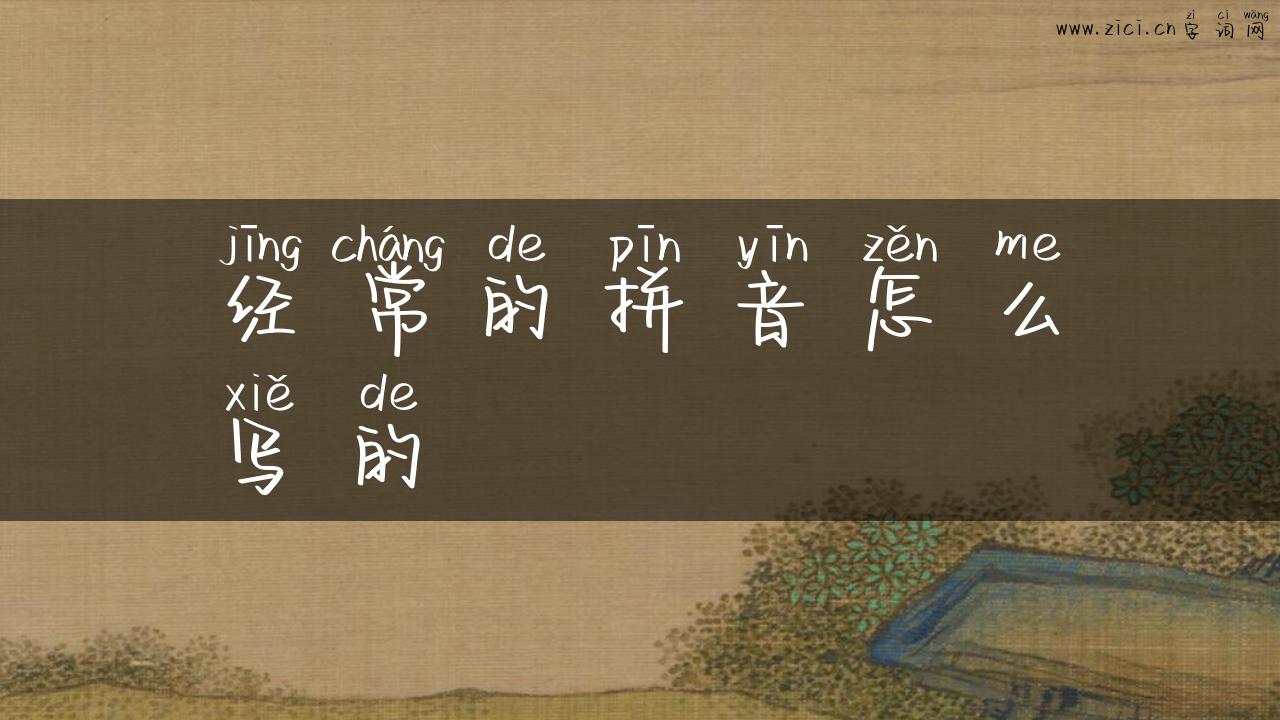 zì cí wǎng
www.zici.cn 字词网
jīng cháng de pīn yīn zěn me
经常的拼音怎么
xiě de
写的